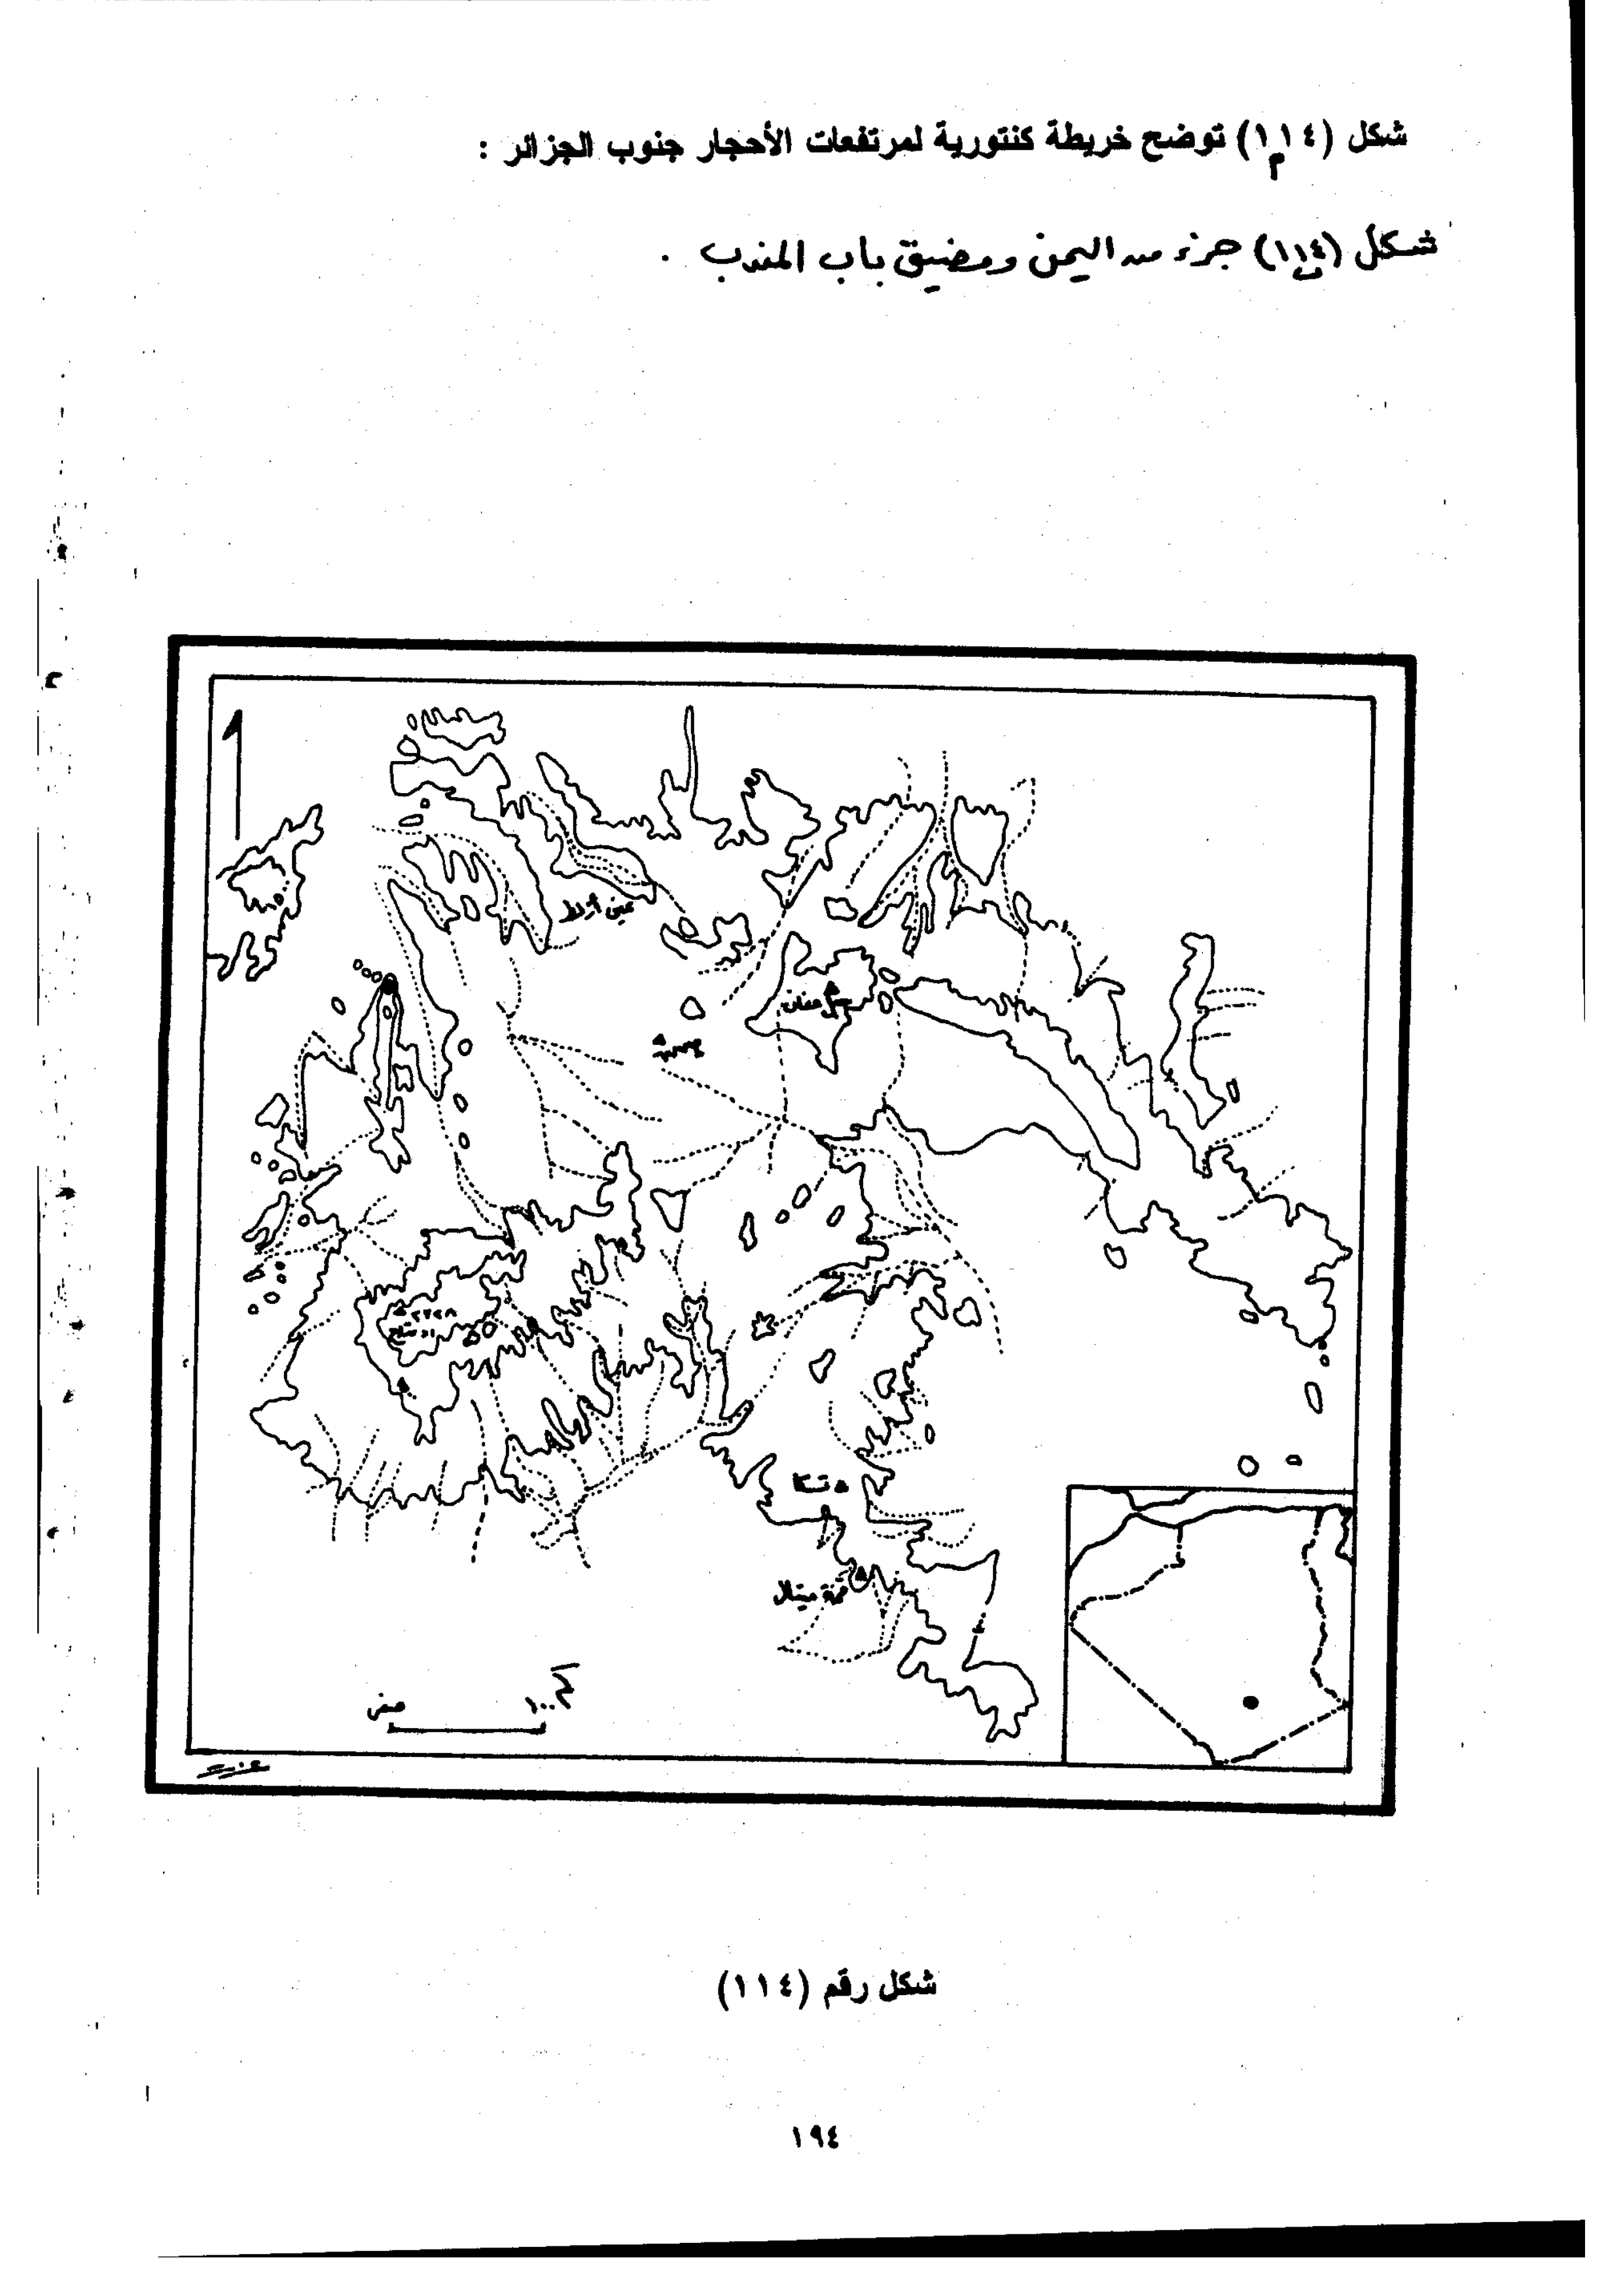 شكل (١١٤م) توضح خريطة كنتورية لمرتفعات الأحجار جنوب الجزائر :
شكل (١١٤ب) جزء من اليمن ومضيق باب المندب .
عين
جبل
٢٣٢٨
قمة
صفر ١٠٠ كم
شكل رقم (١١٤)
١٩٤